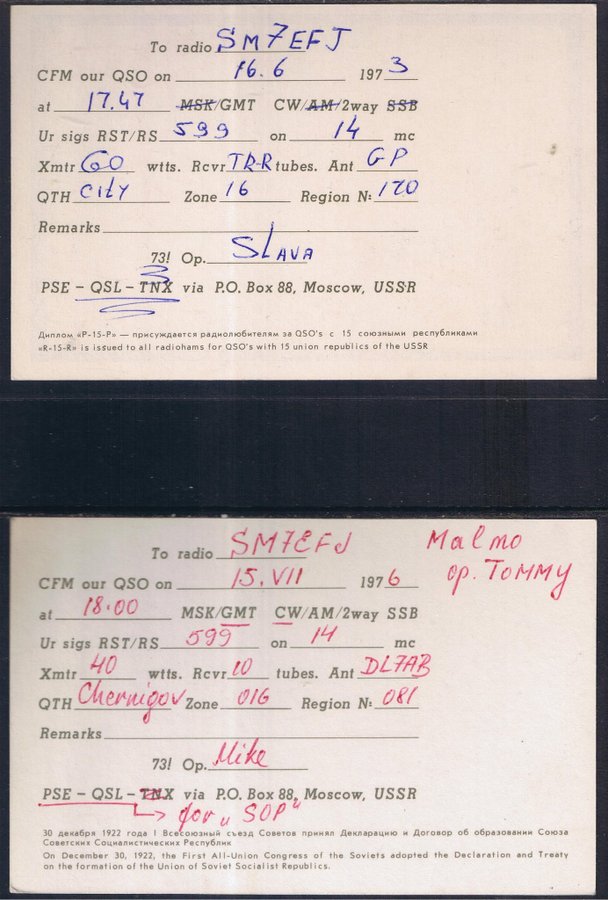 To radio SM7EFJ
CFM our QSO on 16.6 1973
at 17.47 MSK/GMT CW/AM/2way SSB
Ur sigs RST/RS 599 on 14 mc
Xmtr 60 wtts. Rcvr TRR tubes. Ant GP
QTH City Zone 16 Region №: 170
Remarks
73! Op. Slava
PSE – QSL – TNX via P.O. Box 88, Moscow, USSR
Диплом «Р-15-Р» — присуждается радиолюбителям за QSO's с 15 союзными республиками
«R-15-R» is issued to all radiohams for QSO's with 15 union republics of the USSR
To radio SM7EFJ Malmo
CFM our QSO on 15.VII 1976 op. TOMMY
at 18.00 MSK/GMT CW/AM/2way SSB
Ur sigs RST/RS 599 on 14 mc
Xmtr 40 wtts. Rcvr 10 tubes. Ant DL7AB
QTH Chernigov Zone 016 Region №: 081
Remarks
73! Op. Mike
PSE – QSL – TNX via P.O. Box 88, Moscow, USSR
for „SOP"
30 декабря 1922 года I Всесоюзный съезд Советов принял Декларацию и Договор об образовании Союза
Советских Социалистических Республик
On December 30, 1922, the First All-Union Congress of the Soviets adopted the Declaration and Treaty
on the formation of the Union of Soviet Socialist Republics.